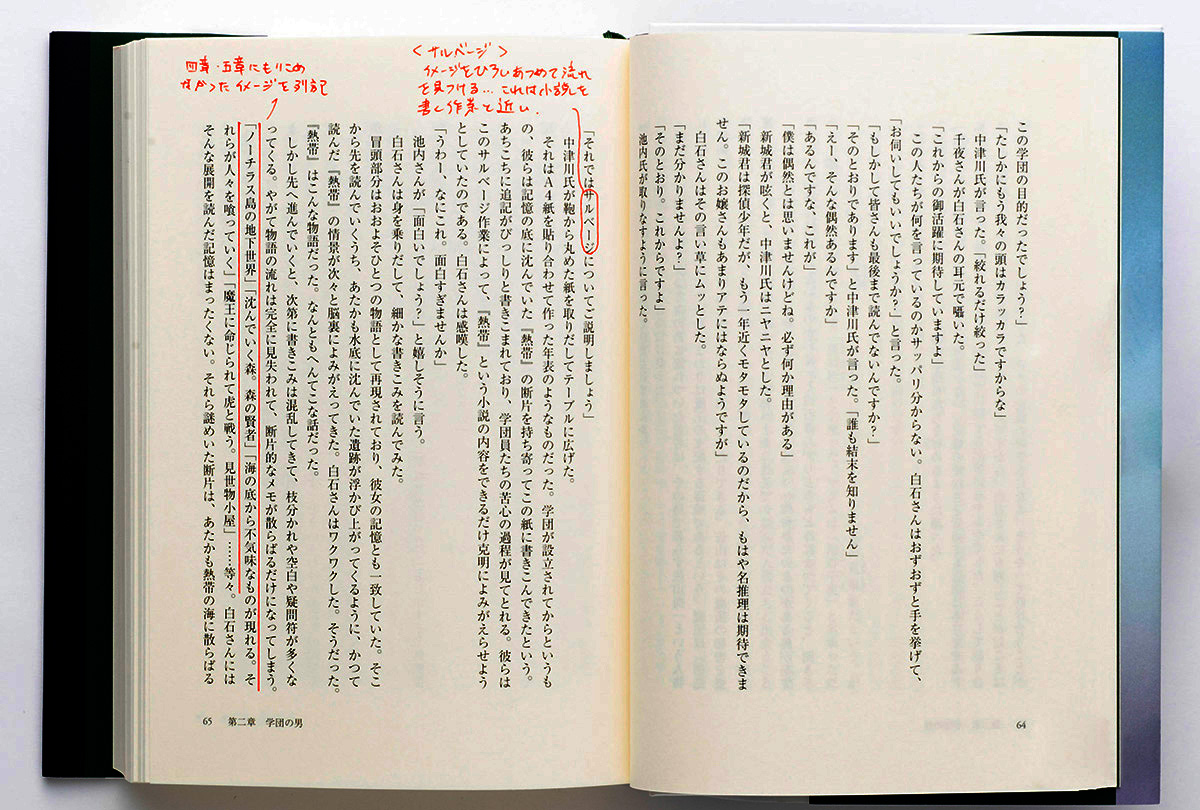 この学団の目的だったでしょう?」
「たしかにもう我々の頭はカラッカラですからな」
中津川氏が言った。「絞れるだけ絞った」
千夜さんが白石さんの耳元で囁いた。
「これからの御活躍に期待していますよ」
この人たちが何を言っているのかサッパリ分からない。白石さんはおずおずと手を挙げて、
「お伺いしてもいいでしょうか?」と言った。
「もしかして皆さんも最後まで読んでないんですか?」
「そのとおりであります」と中津川氏が言った。「誰も結末を知りません」
「えー、そんな偶然あるんですか」
「あるんですな、これが」
「僕は偶然とは思いませんけどね。必ず何か理由がある」
新城君が呟くと、中津川氏はニヤニヤとした。
「新城君は探偵少年だが、もう一年近くモタモタしているのだから、もはや名推理は期待できま
せん。このお嬢さんもあまりアテにはならぬようですが」
白石さんはその言い草にムッとした。
「まだ分かりませんよ?」
「そのとおり。これからですよ」
池内氏が取りなすように言った。
64
<サルベージ>
イメージをひろいあつめて流れ
を見つける…これは小説を
書く作業と近い.
四章・五章にもりこめ
なかったイメージを列記
「それではサルベージについてご説明しましょう」
中津川氏が鞄から丸めた紙を取りだしてテーブルに広げた。
それはA4紙を貼り合わせて作った年表のようなものだった。学団が設立されてからというも
の、彼らは記憶の底に沈んでいた『熱帯』の断片を持ち寄ってこの紙に書きこんできたという。
あちこちに追記がびっしりと書きこまれており、学団員たちの苦心の過程が見てとれる。彼らは
このサルベージ作業によって、『熱帯』という小説の内容をできるだけ克明によみがえらせよう
としていたのである。白石さんは感嘆した。
「うわー、なにこれ。面白すぎませんか」
池内さんが「面白いでしょう?」と嬉しそうに言う。
白石さんは身を乗りだして、細かな書きこみを読んでみた。
冒頭部分はおおよそひとつの物語として再現されており、彼女の記憶とも一致していた。そこ
から先を読んでいくうち、あたかも水底に沈んでいた遺跡が浮かび上がってくるように、かつて
読んだ『熱帯』の情景が次々と脳裏によみがえってきた。白石さんはワクワクした。そうだった。
『熱帯』はこんな物語だった。なんともへんてこな話だった。
しかし先へ進んでいくと、次第に書きこみは混乱してきて、枝分かれや空白や疑問符が多くな
ってくる。やがて物語の流れは完全に見失われて、断片的なメモが散らばるだけになってしまう。
「ノーチラス島の地下世界」「沈んでいく森。森の賢者」「海の底から不気味なものが現れる。そ
れらが人々を喰っていく」「魔王に命じられて虎と戦う。見世物小屋」……等々。白石さんには
そんな展開を読んだ記憶はまったくない。それら謎めいた断片は、あたかも熱帯の海に散らばる
65 第二章 学団の男